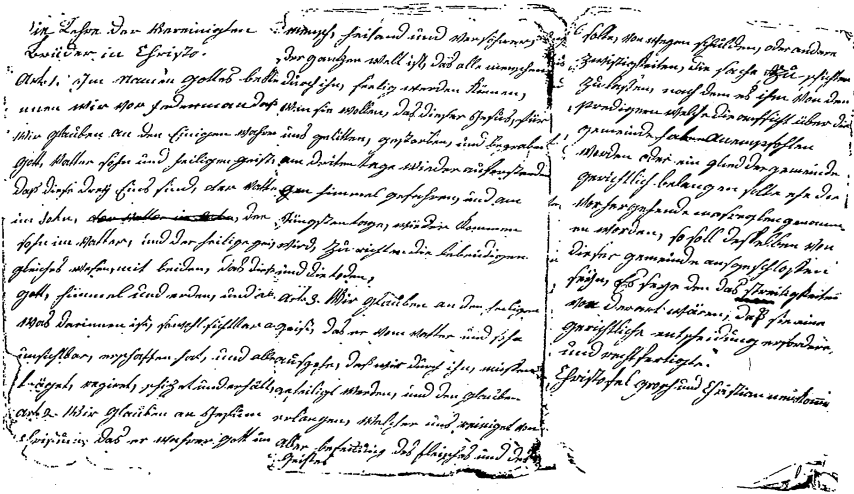 die Lehre der Vereinigten
Brüder in Christo.
Art. 1. Im Namen Gottes beken
nen wir vor Jederman das
Wir glauben an den Einigen wahren
gott, Vatter sohn und heiligen geist
daß diese drey Eins sind, der Vatter
im sohn, der Vatter im sohn, der
sohn im Vatter, und der heilige geist
gleiches wesens mit beiden, das dieser
gott, himmel und erden, und
was darinnen ist, sichtbar
unsichtbar, erschaffen hat, und alles
träget, regiret, schützet und erhält
Art. 2. Wir glauben an Jesum
Christum, das er wahrer gott und
mensch, heiland und versöhner
der gantzen welt ist, das alle menschen
durch ihn, seelig werden können,
wen sie wollen, das dieser Jesus, für
uns gelitten, gestorben, und begraben
am dritten tage wieder auferstanden
gen himmel gefahren, und am
Jüngsten tage, wieder kommen
wird, zu richten die lebendigen
und die toden,
Art. 3. Wir glauben an den heiligen
geist, das er vom vatter und sohn
ausgehe, daß wir durch ihn, müssen
geheiligt werden, und den glauben
erlangen, welcher uns reiniget von
aller befleckung des fleisches und des
Geistes
solte, von wegen schulden, oder andere
zwistigkeiten, die sache zu schlichten
zu lasten, nach dem es ihm von den
predigern welche die aufsicht über die
gemeinde haben anempfohlen
worden oder ein glied der gemeinde
gerichtlich belangen solte ehe die
vorhergehende masreglen genomm
en worden, so soll desselben von
dieser gemeinde ausgeschlossen
seyn, Es seye den das streitigkeiten
von der art wären, daß sie eine
gerichtliche entscheidung erfordere,
und rechtfertigte.
Christofel grosch und Christian neukomm